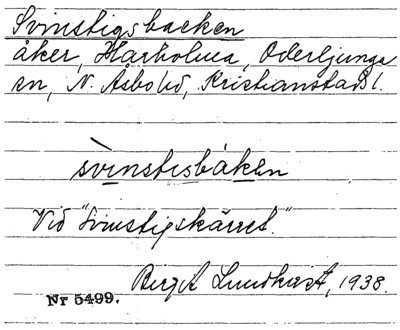 Svinstigsbacken
åker, Hårholma, Oderljunga
sn, N. Åsbo hd, Kristianstads l.
svinstisbaken
Vid "Svinstigskärret."
Birgit Lundkvist, 1938.
Nr 5499.